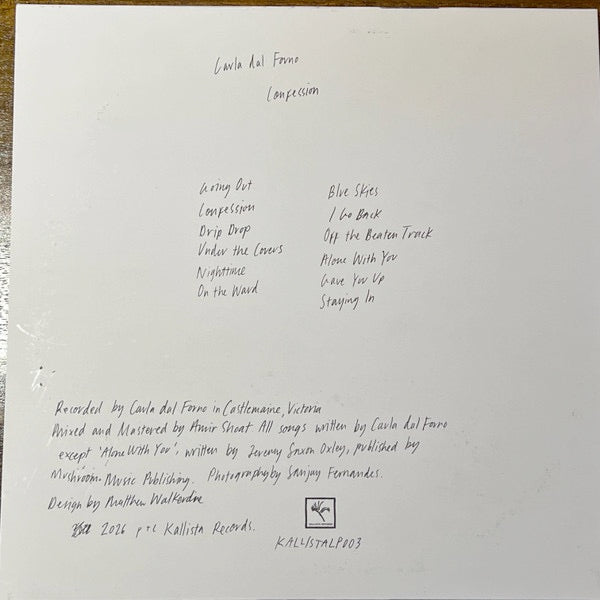 Carla dal Forno
Confession
Going Out
Confession
Drip Drop
Under the Covers
Nighttime
On the Ward
Blue Skies
I Go Back
Off the Beaten Track
Alone With You
Gave You Up
Staying In
Recorded by Carla dal Forno in Castlemaine, Victoria
Mixed and Mastered by Amir Shoat All songs written by Carla dal Forno
except 'Alone With You', written by Jeremy Saxon Oxley, published by
Mushroom Music Publishing. Photography by Sanjay Fernandes.
Design by Matthew Walkerdine
2026 p + c Kallista Records.
KALLISTALP003